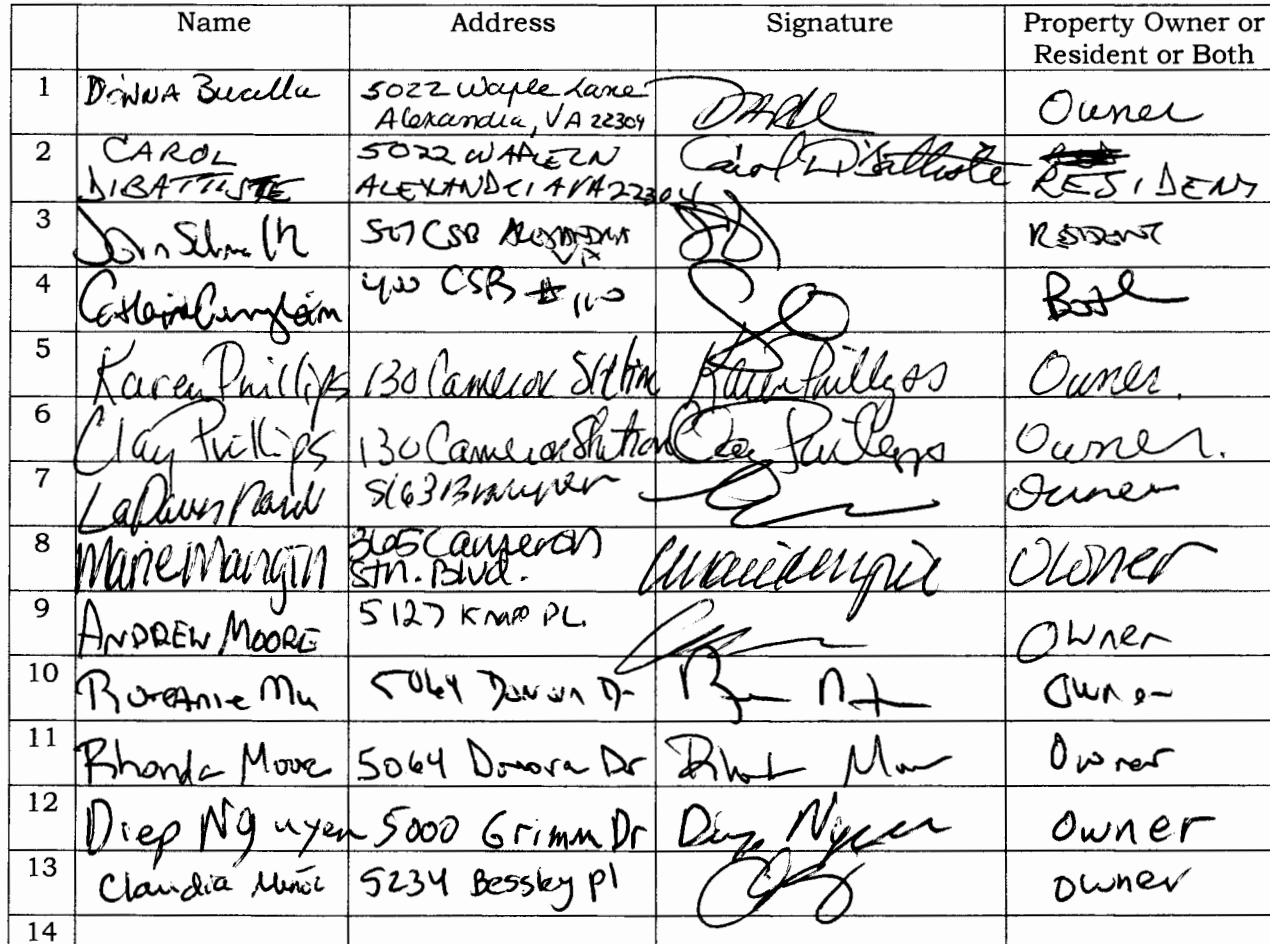 Name Address Signature Property Owner or
Resident or Both
1 DONNA Bucella 5022 Waple Lane Owner
Alexandria, VA 22304
2 CAROL 5022 WAPLE LN Carol DiBattiste RESIDENT
DIBATTISTE ALEXANDRIA VA 22304
3 John 507 CSB Alexandria RESIDENT
VA
4 400 CSB #110 Both
5 Karen Phillips 130 Cameron Station Karen Phillips Owner.
6 Clay Phillips 130 Cameron Station Clay Phillips Owner.
7 LaDawn 5163 Brawner Owner
8 Marie Mangin 365 Cameron Owner
Stn. Blvd.
9 ANDREW MOORE 5127 KNAPP PL. Owner
10 5064 Donovan Dr Owner
11 Rhonda Moore 5064 Donovan Dr Owner
12 Diep Nguyen 5000 Grimm Dr Diep Nguyen Owner
13 Claudia Muñoz 5234 Bessley Pl Owner
14